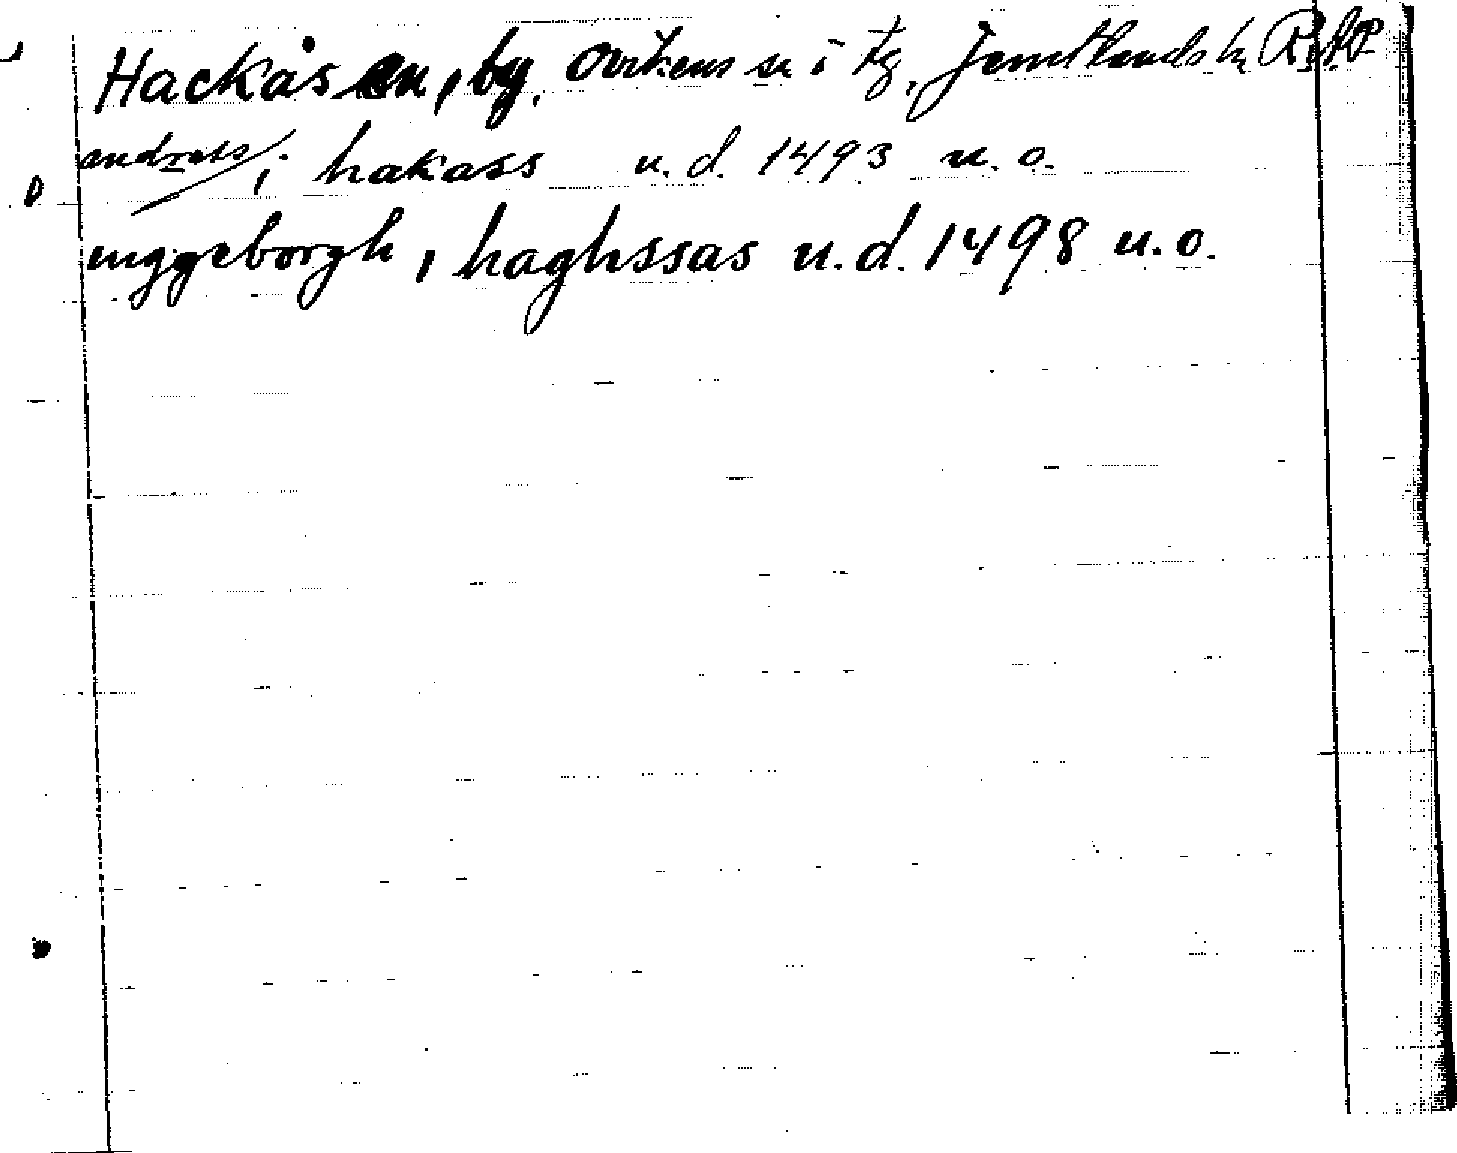 Hackåsen, by, Ovikens sn i tg, Jemtlands
andreas, i hakass u.d. 1493 u.o.
inggeborgh, i haghssas u.d. 1498 u.o.